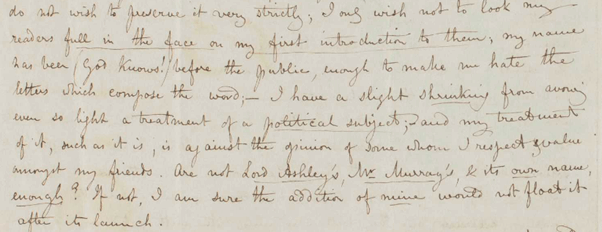 do not wish to preserve it very strictly; I only wish not to look my
readers full in the face on my first introduction to them; my name
has been (God knows!) before the public, enough to make me hate the
letters which compose the word;— I have a slight shrinking from avowing
even so light a treatment of a political subject;—and my treatment
of it, such as it is, is against the opinion of some whom I respect & value
amongst my friends. Are not Lord Ashley's, Mr. Murray's, & its own name,
enough? If not, I am sure the addition of mine would not float it
after its launch.